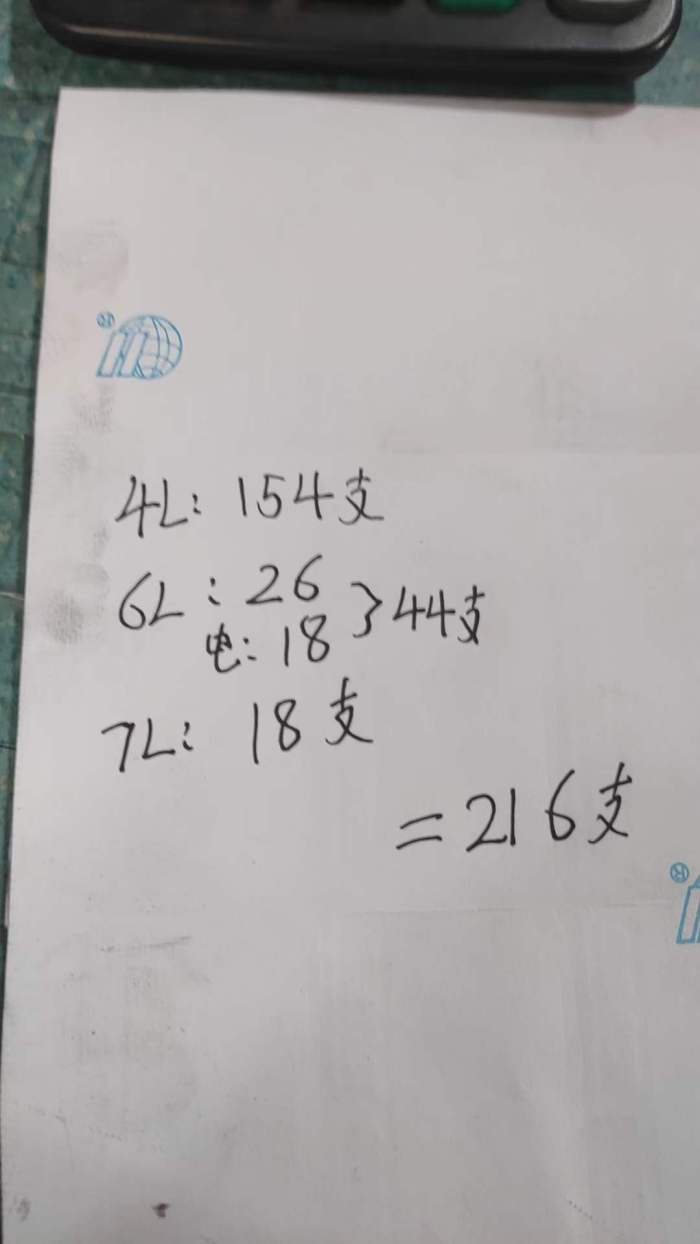 4L: 154支
6L: 26
电: 18 } 44支
7L: 18支
= 216支